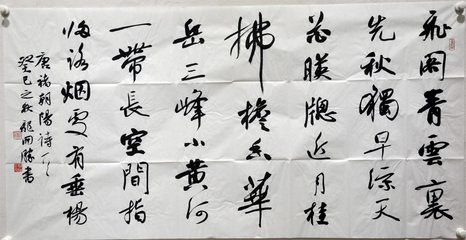 飛閣青雲裏
先秋獨早涼天
花暎牕近月桂
拂檐香華
岳三峰小黄河
一帶長空間指
归路烟處有垂楊
唐褚朝陽詩
癸巳之秋開勝書